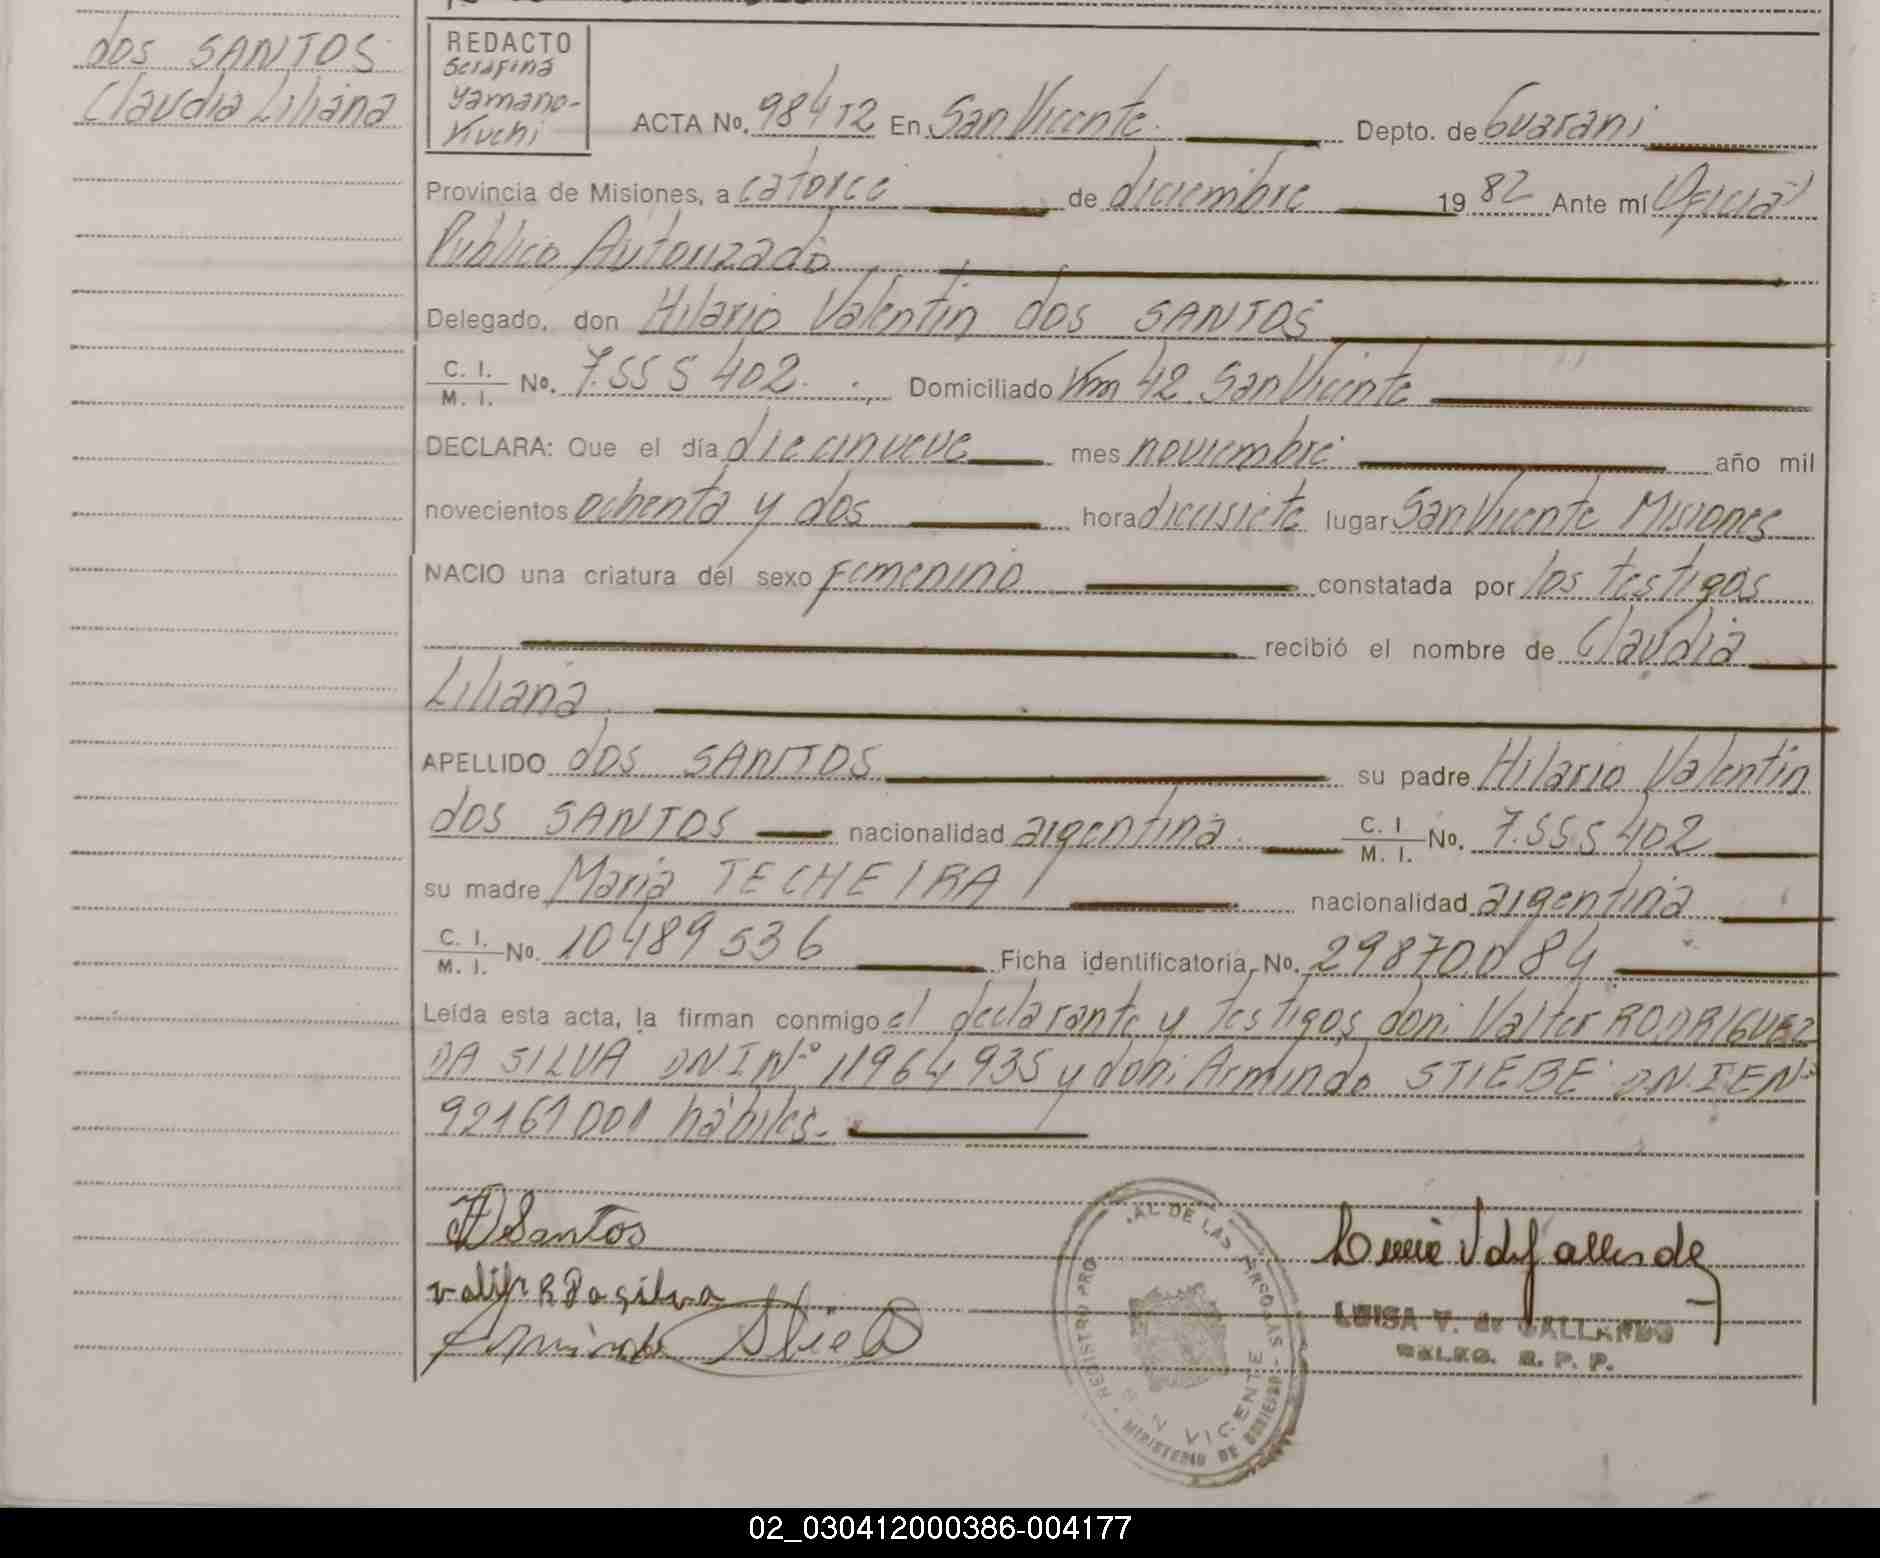 dos SANTOS
Claudia Liliana
REDACTO
Serafina
Yamano-
Kuchi
ACTA No. 984 T2 En San Vicente. Depto. de Guarani
Provincia de Misiones, a catorce de diciembre 1982 Ante mí Oficial
Público Autorizado
Delegado, don Hilario Valentin dos SANTOS
C. I. / M. I. No. 7.555 402. Domiciliado Km 42 San Vicente
DECLARA: Que el día diecinueve mes noviembre año mil
novecientos ochenta y dos hora diecisiete lugar San Vicente Misiones
NACIO una criatura del sexo femenino constatada por los testigos
recibió el nombre de Claudia
Liliana
APELLIDO dos SANTOS su padre Hilario Valentin
dos SANTOS nacionalidad argentina C. I / M. I. No. 7.555 402
su madre Maria TECHEIRA nacionalidad argentina
C. I. / M. I. No. 10489 536 Ficha identificatoria No. 29870.084
Leída esta acta, la firman conmigo el declarante y testigos don: Valter RODRIGUEZ
DA SILVA DNI Nº 11964 935 y don: Armindo STIEBE DNIE Nº
92161001 hábiles.-
HD Santos
Valter R Da silva
Armindo Stieb
REGISTRO PRO AL DE LAS PERSONAS - MINISTERIO DE GOBIERNO
VICENTE
LUISA V. de GALLARDO
DALEG. R. P. P.
02_030412000386-004177